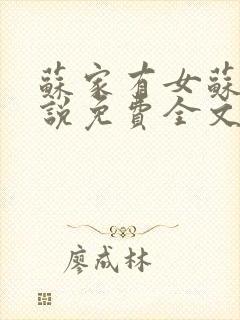 蘇家有女蘇
說免費全文
廖成林